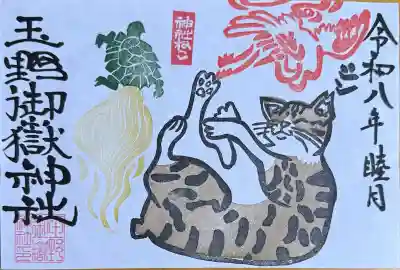 令和八年睦月
神社ねこ
玉野御嶽神社